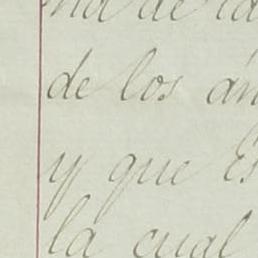 de la
de los án
y que Es
la cual